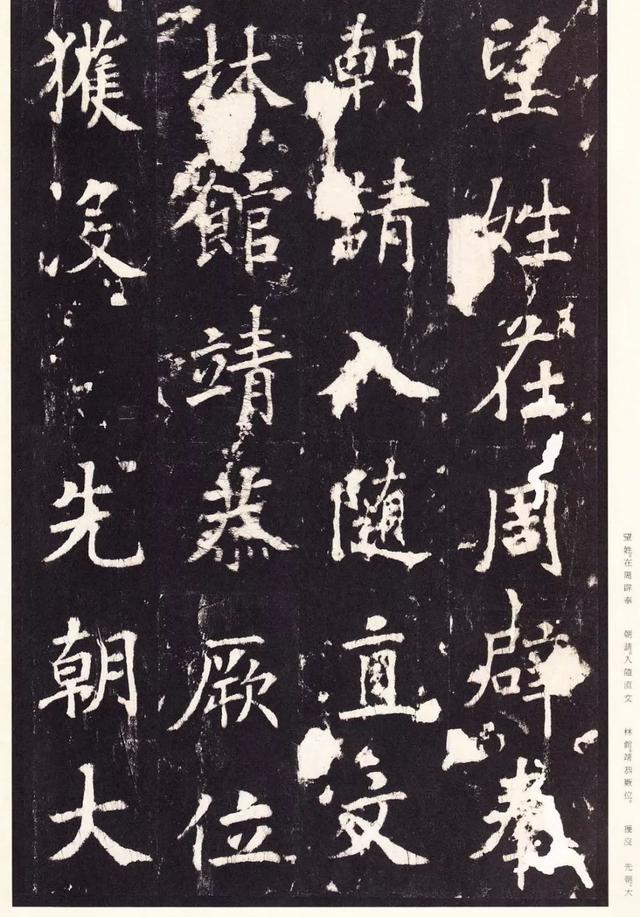 望姓在周辟奉
朝請入隨直文
林館靖恭厥位
獲沒 先朝大
望姓在周辟奉 朝請入隨直文 林館靖恭厥位 獲沒 先朝大